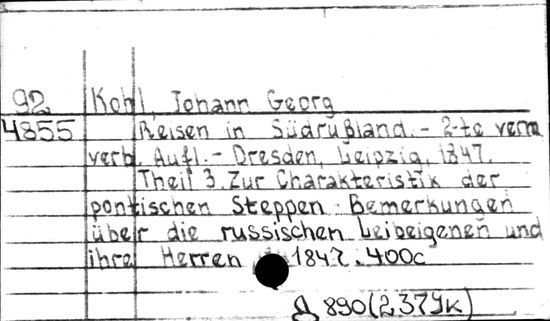 92 Kohl, Johann Georg
4855 Reisen in Südrußland. - 2-te verm.
verb. Aufl. - Dresden, Leipzig, 1847.
Theil 3. Zur Charakteristik der
pontischen Steppen. Bemerkungen
über die russischen Leibeigenen und
ihre Herren 1847. 400c
Д 890(2379к)